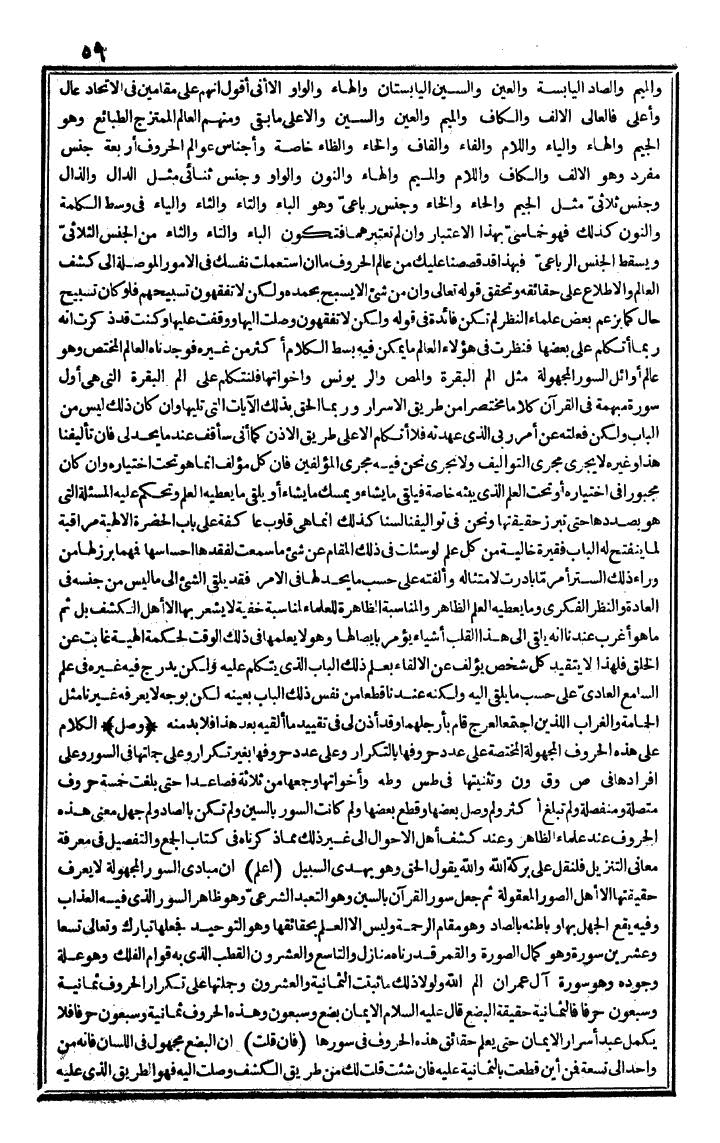 ٥٩
والميم والصاد اليابسة والعين والسين اليابستان والهاء والواو الا أنى أقول انهم على مقامين فى الاتحاد عال
وأعلى فالعالى الالف والكاف والميم والعين والسين والاعلى ما بقى ومنهم العالم الممتزج الطبائع وهو
الجيم والهاء والياء واللام والفاء والقاف والخاء والظاء خاصة وأجناس عوالم الحروف أربعة جنس
مفرد وهو الالف والكاف واللام والميم والهاء والنون والواو وجنس ثنائى مثل الدال والذال
وجنس ثلاثىّ مثل الجيم والحاء والخاء وجنس رباعىّ وهو الباء والتاء والثاء والياء فى وسط الكلمة
والنون كذلك فهو خماسىّ بهذا الاعتبار وان لم تعتبرهما فتكون الباء والتاء والثاء من الجنس الثلاثىّ
ويسقط الجنس الرباعىّ فبهذا قد قصصنا عليك من عالم الحروف ما ان استعملت نفسك فى الامور الموصلة الى كشف
العالم والاطلاع على حقائقه وتحقق قوله تعالى وان من شئ الا يسبح بحمده ولكن لا تفقهون تسبيحهم فلو كان تسبيح
حال كما يزعم بعض علماء النظر لم تكن فائدة فى قوله ولكن لا تفقهون وصلت اليها ووقفت عليها وكنت قد ذكرت انه
ربما أتكلم على بعضها فنظرت فى هؤلاء العالم ما يمكن فيه بسط الكلام أكثر من غيره فوجدناه العالم المختص وهو
عالم أوائل السور المجهولة مثل الم البقرة والمص والر يونس واخواتها فلنتكلم على الم البقرة التى هى أول
سورة مبهمة فى القرآن كلاما مختصرا من طريق الاسرار وربما الحق بذلك الآيات التى تليها وان كان ذلك ليس من
الباب ولكن فعلته عن أمر ربى الذى عهدته فلا أتكلم الا على طريق الاذن كما أنى سأقف عند ما يحد لى فان تأليفنا
هذا وغيره لا يجرى مجرى التواليف ولا يجرى نحن فيه مجرى المؤلفين فان كل مؤلف انما هو تحت اختياره وان كان
مجبورا فى اختياره أو تحت العلم الذى يبثه خاصة فيلقى ما يشاء ويمسك ما يشاء أو يلقى ما يعطيه العلم وتحكم عليه المسئلة التى
هو بصددها حتى تبرز حقيقتها ونحن فى تواليفنا لسنا كذلك انما هى قلوب عاكفة على باب الحضرة الالهية مراقبة
لما ينفتح له الباب فقيرة خالية من كل علم لو سئلت فى ذلك المقام عن شئ ما سمعت لفقدها احساسها فهما برز لها من
وراء ذلك الستر أمر مّا بادرت لامتثاله وألفته على حسب ما يحد لها فى الامر فقد يلقى الشئ الى ما ليس من جنسه فى
العادة والنظر الفكرى وما يعطيه العلم الظاهر والمناسبة الظاهرة للعلماء لمناسبة خفية لا يشعر بها الا أهل الكشف بل ثم
ما هو أغرب عندنا انه يلقى الى هذا القلب أشياء يؤمر بايصالها وهو لا يعلمها فى ذلك الوقت لحكمة الهية غابت عن
الخلق فلهذا لا يتقيد كل شخص يؤلف عن الالقاء بعلم ذلك الباب الذى يتكلم عليه ولكن يدرج فيه غيره فى علم
السامع العادىّ على حسب ما يلقى اليه ولكنه عندنا قطعا من نفس ذلك الباب بعينه لكن بوجه لا يعرفه غيرنا مثل
الحمامة والغراب اللذين اجتمعا لعرج قام بأرجلهما وقد أذن لى فى تقييد ما ألقيه بعد هذا فلا بد منه ﴿وصل﴾ الكلام
على هذه الحروف المجهولة المختصة على عدد حروفها بالتكرار وعلى عدد حروفها بغير تكرار وعلى جملتها فى السور وعلى
افرادها فى ص وق ون وتثنيتها فى طس وطه وأخواتها وجمعها من ثلاثة فصاعدا حتى بلغت خمسة حروف
متصلة ومنفصلة ولم تبلغ أكثر ولم وصل بعضها وقطع بعضها ولم كانت السور بالسين ولم تكن بالصاد ولم جهل معنى هذه
الحروف عند علماء الظاهر وعند كشف أهل الاحوال الى غير ذلك مما ذكرناه فى كتاب الجمع والتفصيل فى معرفة
معانى التنزيل فلنقل على بركة الله والله يقول الحق وهو يهدى السبيل (اعلم) ان مبادى السور المجهولة لا يعرف
حقيقتها الا أهل الصور المعقولة ثم جعل سور القرآن بالسين وهو التعبد الشرعىّ وهو ظاهر السور الذى فيه العذاب
وفيه يقع الجهل بها وباطنه بالصاد وهو مقام الرحمة وليس الا العلم بحقائقها وهو التوحيد فجعلها تبارك وتعالى تسعا
وعشرين سورة وهو كمال الصورة والقمر قدرناه منازل والتاسع والعشرون القطب الذى به قوام الفلك وهو علة
وجوده وهو سورة آل عمران الم الله ولولا ذلك ما ثبتت الثمانية والعشرون وجملتها على تكرار الحروف ثمانية
وسبعون حرفا فالثمانية حقيقة البضع قال عليه السلام الايمان بضع وسبعون وهذه الحروف ثمانية وسبعون حرفا فلا
يكمل عبد أسرار الايمان حتى يعلم حقائق هذه الحروف فى سورها (فان قلت) ان البضع مجهول فى اللسان فانه من
واحد الى تسعة فمن أين قطعت بالثمانية عليه فان شئت قلت لك من طريق الكشف وصلت اليه فهو الطريق الذى عليه